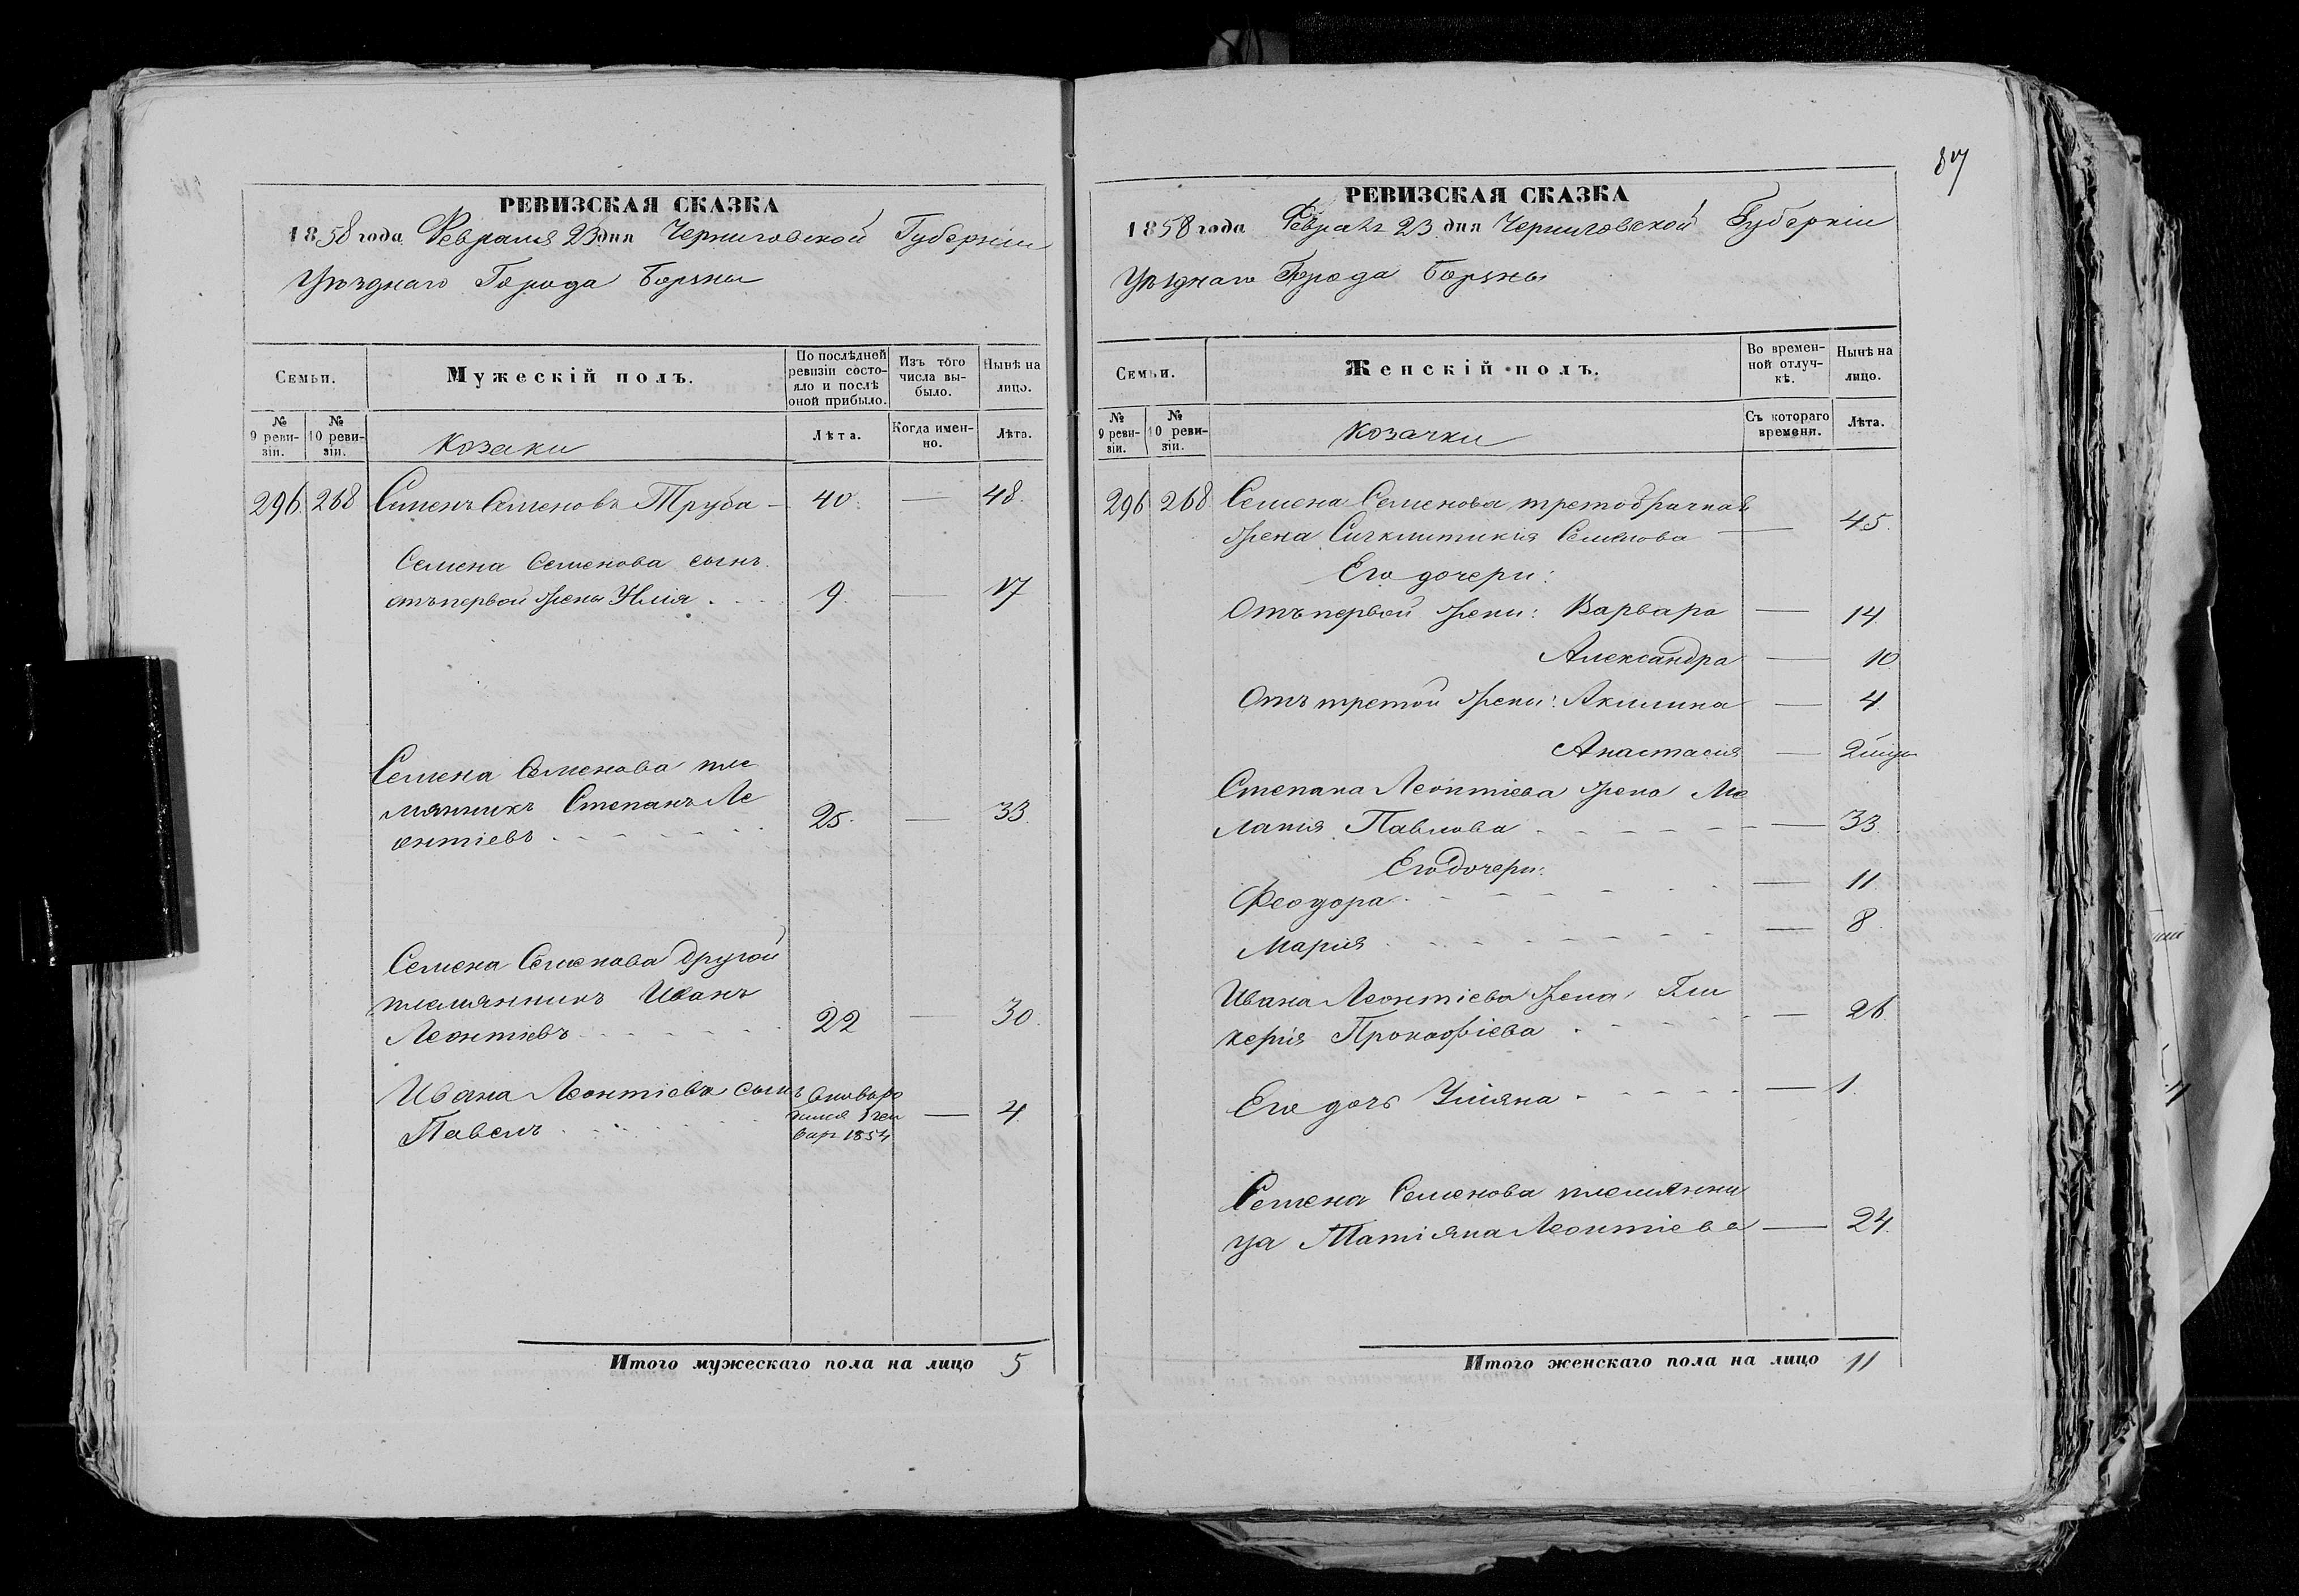 87
РЕВИЗСКАЯ СКАЗКА
1858 года Февраля 23 дня Черниговской Губерніи
Уѣзднаго Города Борзны
Семьи.
Мужескій полъ.
По послѣдней ревизіи состояло и послѣ оной прибыло.
Изъ того числа выбыло.
Нынѣ на лицо.
№ 9 ревизіи.
№ 10 ревизіи.
Козаки
Лѣта.
Когда именно.
Лѣта.
296 268 Сименъ Семеновъ Труба - 40. — 48.
Семена Семенова сынъ
отъ первой жены Илія . . . 9. — 17
Семена Семенова пле
мянникъ Степанъ Ле
онтіевъ . - - - - - 25. — 33.
Семена Семенова другой
племянникъ Иванъ
Леонтіевъ - - - - - 22 — 30.
Ивана Леонтіева сынъ
Павелъ . . . . — 4.
вар 1854
Итого мужескаго пола на лицо 5
РЕВИЗСКАЯ СКАЗКА
1858 года 23 дня Черниговской Губерніи
Уѣзднаго Города Борзны
Семьи.
Женскій полъ.
Во временной отлучкѣ.
Нынѣ на лицо.
№ 9 ревизіи.
№ 10 ревизіи.
Козачки
Съ котораго времени.
Лѣта.
296 268 Семена Семенова третобрачная
жена Семенова — 45.
Его дочери:
Отъ первой жены: Варвара — 14.
Александра — 10
Отъ третой жены: Акилина — 4
Анастасия —
Степана Леонтіева жена Ме
лания Павлова - - - - - — 33.
Его дочери:
Феодора - - - - - — 11.
Мария . - - - - - — 8.
Ивана Леонтіева жена Гли
керия Прокофіева . - - - - — 26
Его дочь Уліяна - - - - - — 1.
Семена Семенова племянни
ца Татіяна Леонтіева — 24.
Итого женскаго пола на лицо 11